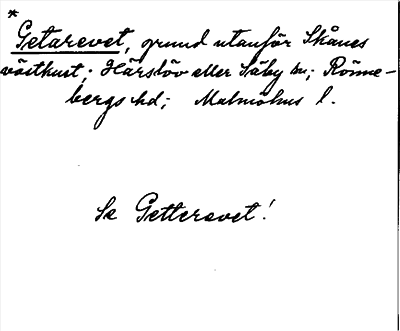 *
Getarevet, grund utanför Skånes
västkust; Härslöv eller Säby sn; Rönne-
bergs hd; Malmöhus l.
Se Getterevet!